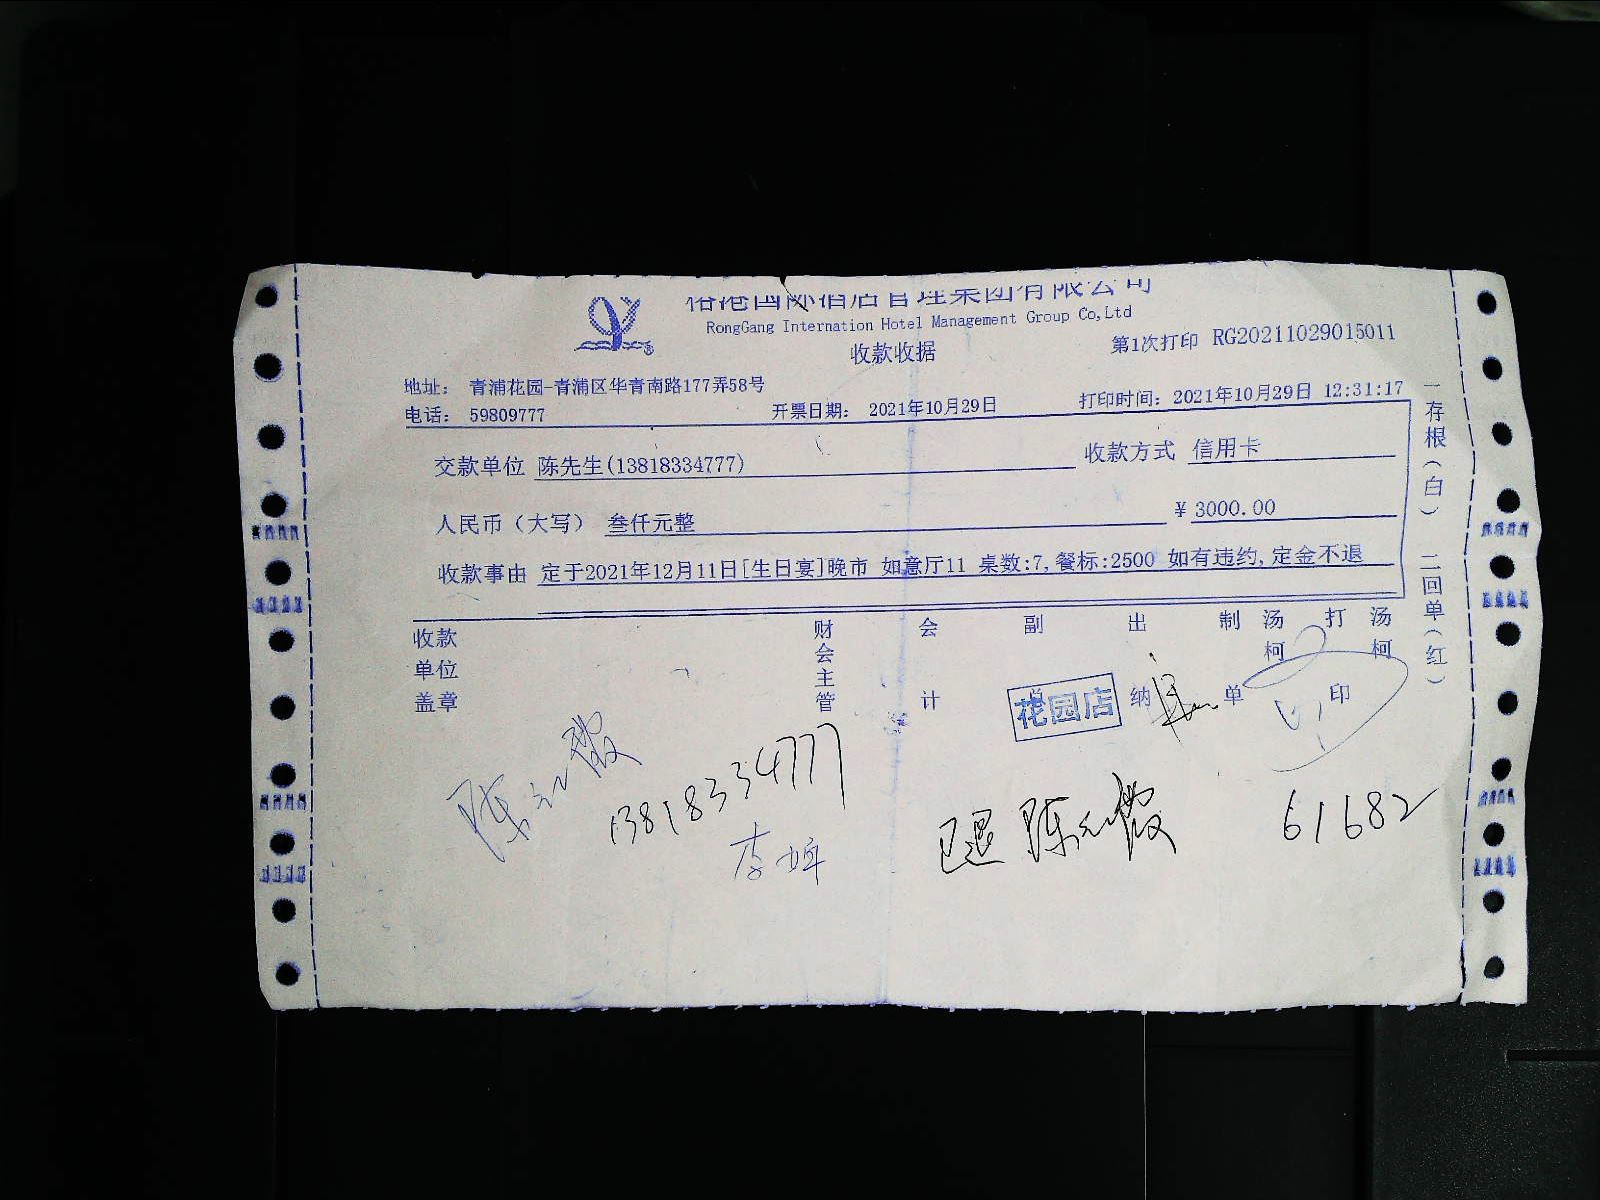 国际酒店管理集团有限公司
RongGang Internation Hotel Management Group Co,Ltd
收款收据
第1次打印 RG20211029015011
地址： 青浦花园-青浦区华青南路177弄58号
电话： 59809777 开票日期： 2021年10月29日 打印时间：2021年10月29日 12:31:17
交款单位 陈先生(13818334777) 收款方式 信用卡
人民币（大写） 叁仟元整 ￥3000.00
收款事由 定于2021年12月11日[生日宴]晚市 如意厅11 桌数:7,餐标:2500 如有违约,定金不退
收款单位盖章 财会主管 会计 副 出纳 制单 汤柯 打印 汤柯
一存根（白） 二回单（红）
花园店
13818334777
已退
61682